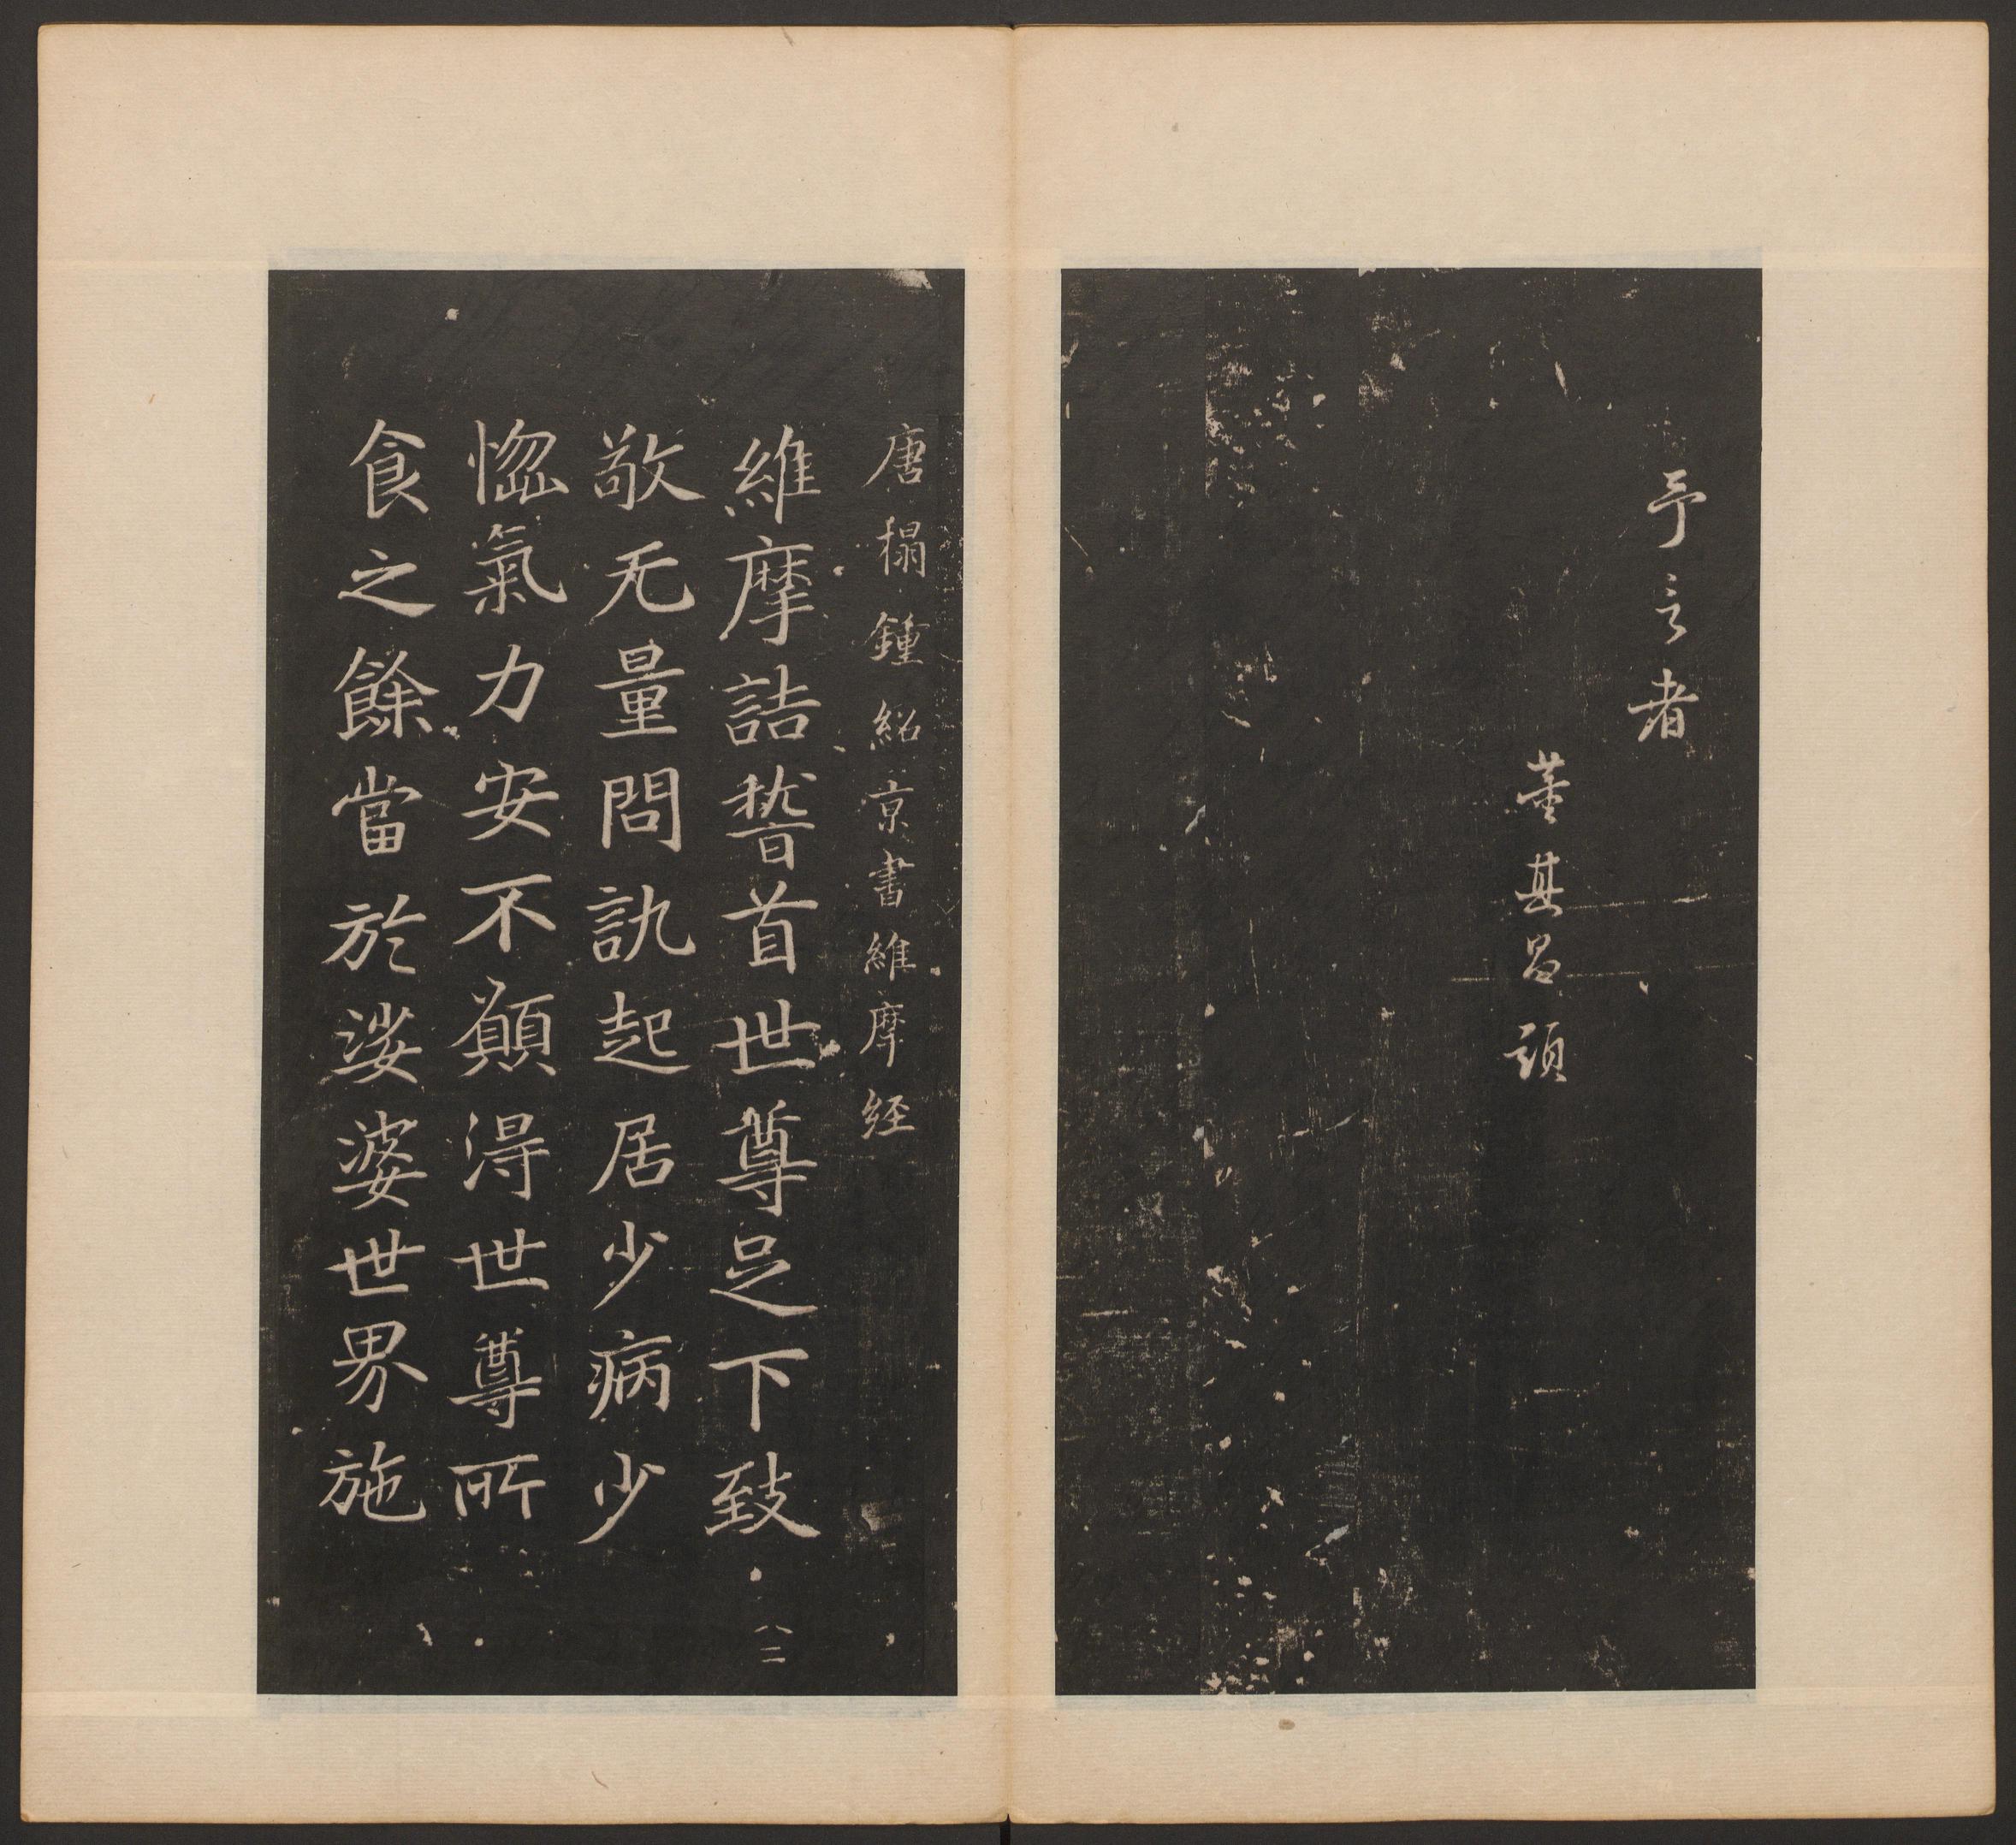 予言者
董其昌題
唐榻鍾紹京書維摩経
維摩詰稽首世尊足下致
敬无量問訊起居少病少
惱氣力安不願得世尊所
食之餘當於娑婆世界施
八二